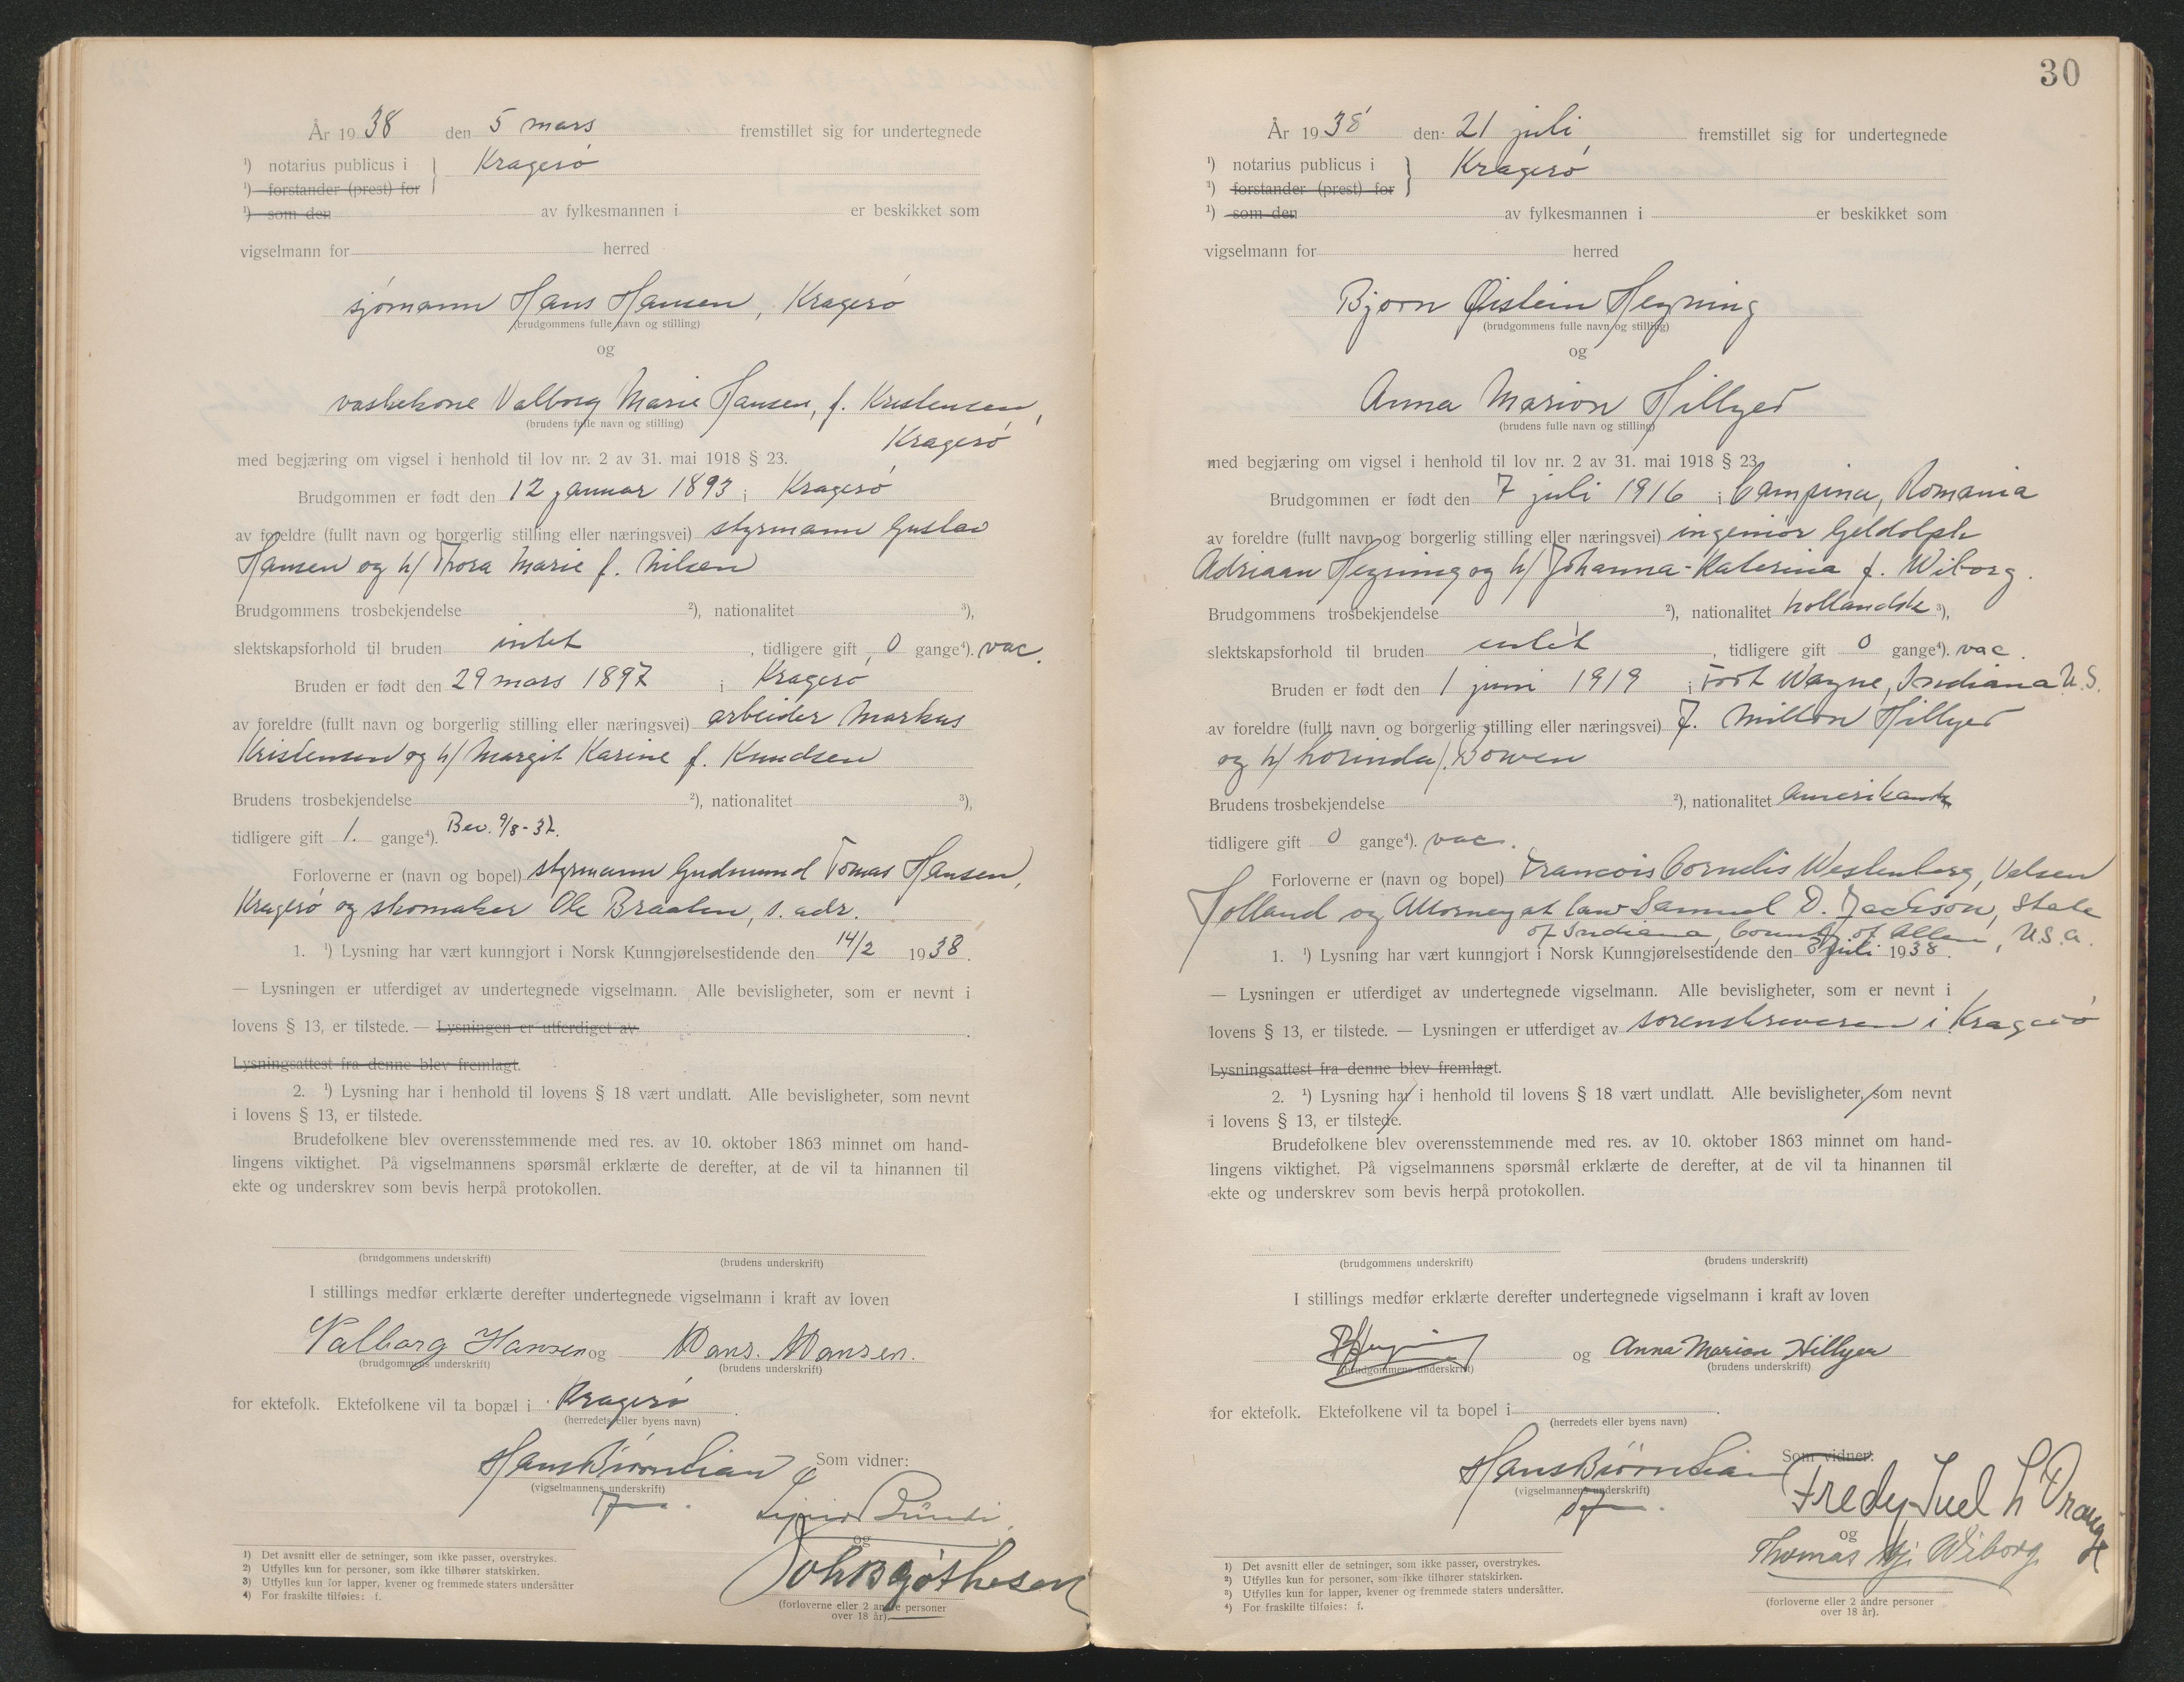 År 19 38 den 5 mars fremstillet sig for undertegnede
¹) notarius publicus i } Kragerø
¹) forstander (prest) for
¹) som den av fylkesmannen i er beskikket som
vigselmann for herred
sjømann Hans Hansen, Kragerø
(brudgommens fulle navn og stilling)
og
vaskekone Valborg Marie Hansen, f. Kristensen,
(brudens fulle navn og stilling)
Kragerø
med begjæring om vigsel i henhold til lov nr. 2 av 31. mai 1918 § 23.
Brudgommen er født den 12 januar 1893 i Kragerø
av foreldre (fullt navn og borgerlig stilling eller næringsvei) styrmann Gustav
Hansen og h/ Thora Marie f. Nilsen
Brudgommens trosbekjendelse ²), nationalitet ³),
slektskapsforhold til bruden intet, tidligere gift 0 gange⁴). vac.
Bruden er født den 29 mars 1897 i Kragerø
av foreldre (fullt navn og borgerlig stilling eller næringsvei) arbeider Markus
Kristensen og h/ Margit Karine f. Knudsen
Brudens trosbekjendelse ²), nationalitet ³),
tidligere gift 1. gange⁴). Bev. 9/8-37.
Forloverne er (navn og bopel) styrmann Gudmund Tomas Hansen,
Kragerø og skomaker Ole Braaten, s. adr.
1. ¹) Lysning har vært kunngjort i Norsk Kunngjørelsestidende den 14/2 1938.
— Lysningen er utferdiget av undertegnede vigselmann. Alle bevisligheter, som er nevnt i
lovens § 13, er tilstede. — Lysningen er utferdiget av
Lysningsattest fra denne blev fremlagt.
2. ¹) Lysning har i henhold til lovens § 18 vært undlatt. Alle bevisligheter, som nevnt
i lovens § 13, er tilstede.
Brudefolkene blev overensstemmende med res. av 10. oktober 1863 minnet om hand-
lingens viktighet. På vigselmannens spørsmål erklærte de derefter, at de vil ta hinannen til
ekte og underskrev som bevis herpå protokollen.
(brudgommens underskrift) (brudens underskrift)
I stillings medfør erklærte derefter undertegnede vigselmann i kraft av loven
Valborg Hansen og Hans. Hansen.
(brudgommens underskrift) (brudens underskrift)
for ektefolk. Ektefolkene vil ta bopæl i Kragerø.
(herredets eller byens navn)
Hans Biørn Lian Som vidner:
(vigselmannens underskrift)
og
(forloverne eller 2 andre personer
over 18 år).
1) Det avsnitt eller de setninger, som ikke passer, overstrykes.
2) Utfylles kun for personer, som ikke tilhører statskirken.
3) Utfylles kun for lapper, kvener og fremmede staters undersåtter
4) For fraskilte tilføies: f.
30
År 19 38 den 21 juli fremstillet sig for undertegnede
¹) notarius publicus i } Kragerø
¹) forstander (prest) for
¹) som den av fylkesmannen i er beskikket som
vigselmann for herred
Bjorn Øistein Heyning
(brudgommens fulle navn og stilling)
og
Anna Marion Hillyer
(brudens fulle navn og stilling)
med begjæring om vigsel i henhold til lov nr. 2 av 31. mai 1918 § 23
Brudgommen er født den 7 juli 1916 i Campina, Romania
av foreldre (fullt navn og borgerlig stilling eller næringsvei) ingeniør Geldolph
Adriaan Heyning og h/ Johanna-Katerina f. Wiborg.
Brudgommens trosbekjendelse ²), nationalitet hollandsk ³),
slektskapsforhold til bruden intet, tidligere gift 0 gange⁴). vac.
Bruden er født den 1 juni 1919 i Fort Wayne, Indiana U.S.
av foreldre (fullt navn og borgerlig stilling eller næringsvei) J. Milton Hillyer
og h/ Lorinda f. Bowen
Brudens trosbekjendelse ²), nationalitet amerikansk
tidligere gift 0 gange⁴). vac.
Forloverne er (navn og bopel) Francois Cornelis Westenberg, Velsen
Holland og Attorney at law Samuel D. Jackson, State
of Indiana, County of Allen, U.S.A.
1. ¹) Lysning har vært kunngjort i Norsk Kunngjørelsestidende den 8 juli 1938.
— Lysningen er utferdiget av undertegnede vigselmann. Alle bevisligheter, som er nevnt i
lovens § 13, er tilstede. — Lysningen er utferdiget av sorenskriveren i Kragerø
Lysningsattest fra denne blev fremlagt.
2. ¹) Lysning har i henhold til lovens § 18 vært undlatt. Alle bevisligheter, som nevnt
i lovens § 13, er tilstede.
Brudefolkene blev overensstemmende med res. av 10. oktober 1863 minnet om hand-
lingens viktighet. På vigselmannens spørsmål erklærte de derefter, at de vil ta hinannen til
ekte og underskrev som bevis herpå protokollen.
(brudgommens underskrift) (brudens underskrift)
I stillings medfør erklærte derefter undertegnede vigselmann i kraft av loven
BHeyning og Anna Marion Hillyer
(brudgommens underskrift) (brudens underskrift)
for ektefolk. Ektefolkene vil ta bopel i.
(herredets eller byens navn)
Hans Biørn Lian Som vidner:
(vigselmannens underskrift)
Fredy Juel
og
Thomas Wiborg
(forloverne eller 2 andre personer
over 18 år).
1) Det avsnitt eller de setninger, som ikke passer, overstrykes.
2) Utfylles kun for personer, som ikke tilhører statskirken.
3) Utfylles kun for lapper, kvener og fremmede staters undersåtter.
4) For fraskilte tilføies: f.